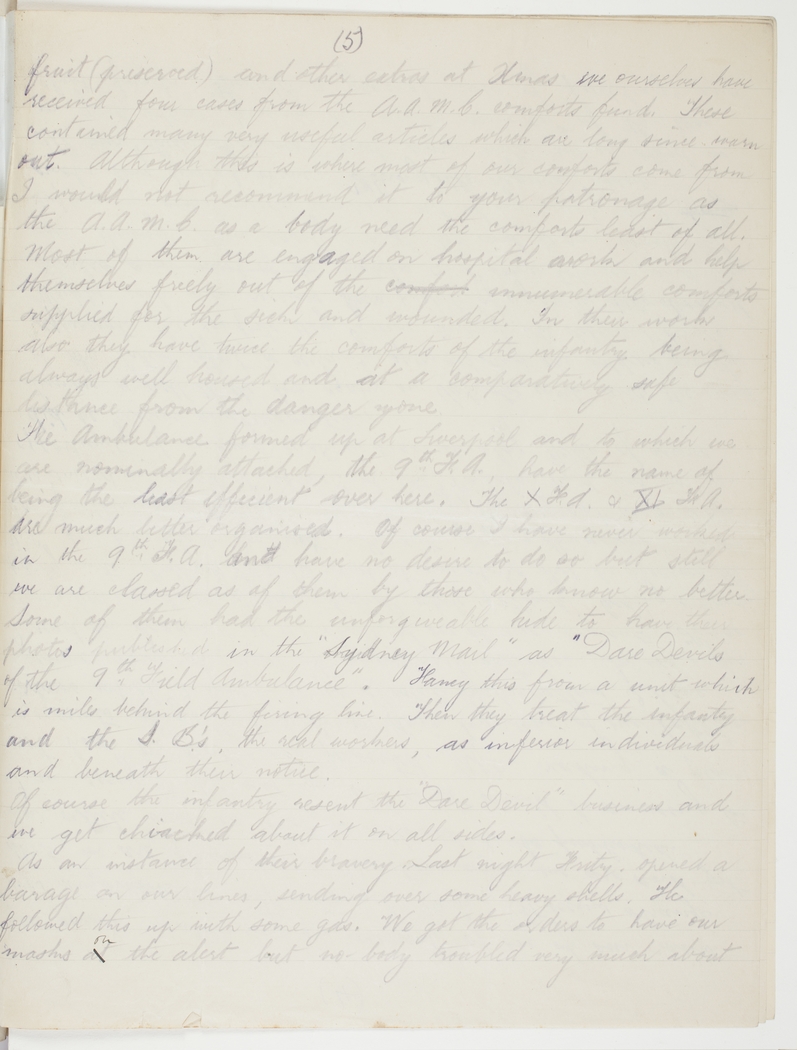 (5)
fruit (preserved) and other extras at Xmas we ourselves have
received four cases from the A.A.M.C. comforts fund. These
contained many very useful articles which are long since worn
out. Although this is where most of our comforts come from
I would not recommend it to your patronage as
the A.A.M.C. as a body need the comforts least of all.
Most of them are engaged on hospital work and help
themselves freely out of the comfort innumerable comforts
supplied for the sick and wounded. In their work
also they have twice the comforts of the infantry being
always well housed and at a comparatively safe
distance from the danger zone.
The Ambulance formed up at Liverpool and to which we
are nominally attached, the 9th F.A. have the name of
being the least efficient over here. The X F.A. & XI F.A.
are much better organised. Of course I have never worked
in the 9th F.A. and have no desire to do so but still
we are classed as of them by those who know no better.
Some of them had the unforgiveable hide to have their
photos published in the "Sydney Mail" as "Dare Devils
of the 9th Field Ambulance". Fancy this from a unit which
is miles behind the firing line. Then they treat the infantry
and the S.B's, the real workers, as inferior individuals
and beneath their notice.
Of course the infantry resent the "Dare Devil" business and
we get chiacked about it on all sides.
As an instance of their bravery. Last night Fritz. opened a
barage on our lines, sending over some heavy shells. He
followed this up with some gas. We got the orders to have our
masks at on the alert but no body troubled very much about